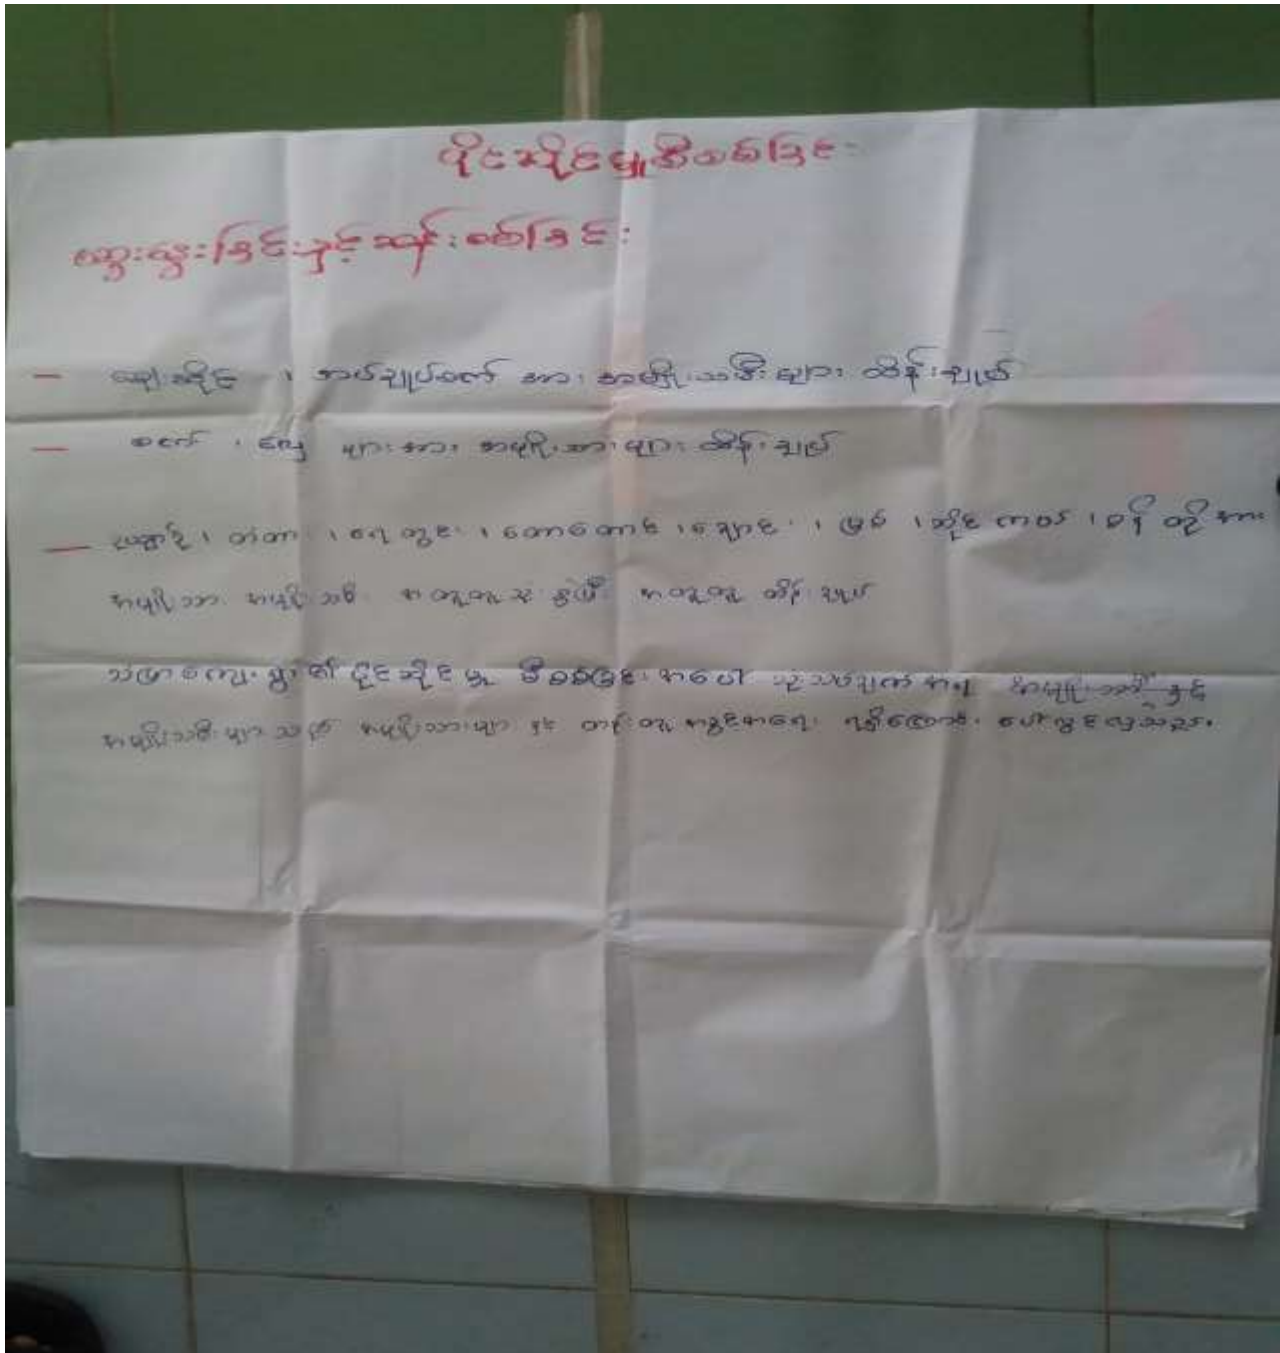 ပိုင်ဆိုင်မှုစီစစ်ခြင်း
ဆွေးနွေးခြင်းနှင့်ဆန်းစစ်ခြင်း
- ဈေးဆိုင် ၊ အပ်ချုပ်စက် အား အမျိုးသမီးများ ထိန်းချုပ်
- စက် ၊ လှေ များအား အမျိုးသားများ ထိန်းချုပ်
- ၊ တံတား ၊ ရေတွင်း ၊ တောတောင် ၊ ချောင်း ၊ မြစ် ၊ တို့အား
အမျိုးသား အမျိုးသမီး အတူတူ သုံးစွဲပြီး အတူတူ ထိန်းချုပ်
သဖြာကျေးရွာ၏ ပိုင်ဆိုင်မှု စီစစ်ခြင်းအပေါ် သုံးသပ်ချက်အရ
အမျိုးသမီးများသည် အမျိုးသားများ နှင့် တန်းတူ အခွင့်အရေး ရရှိကြောင်း ပေါ်လွင်လှသည်။